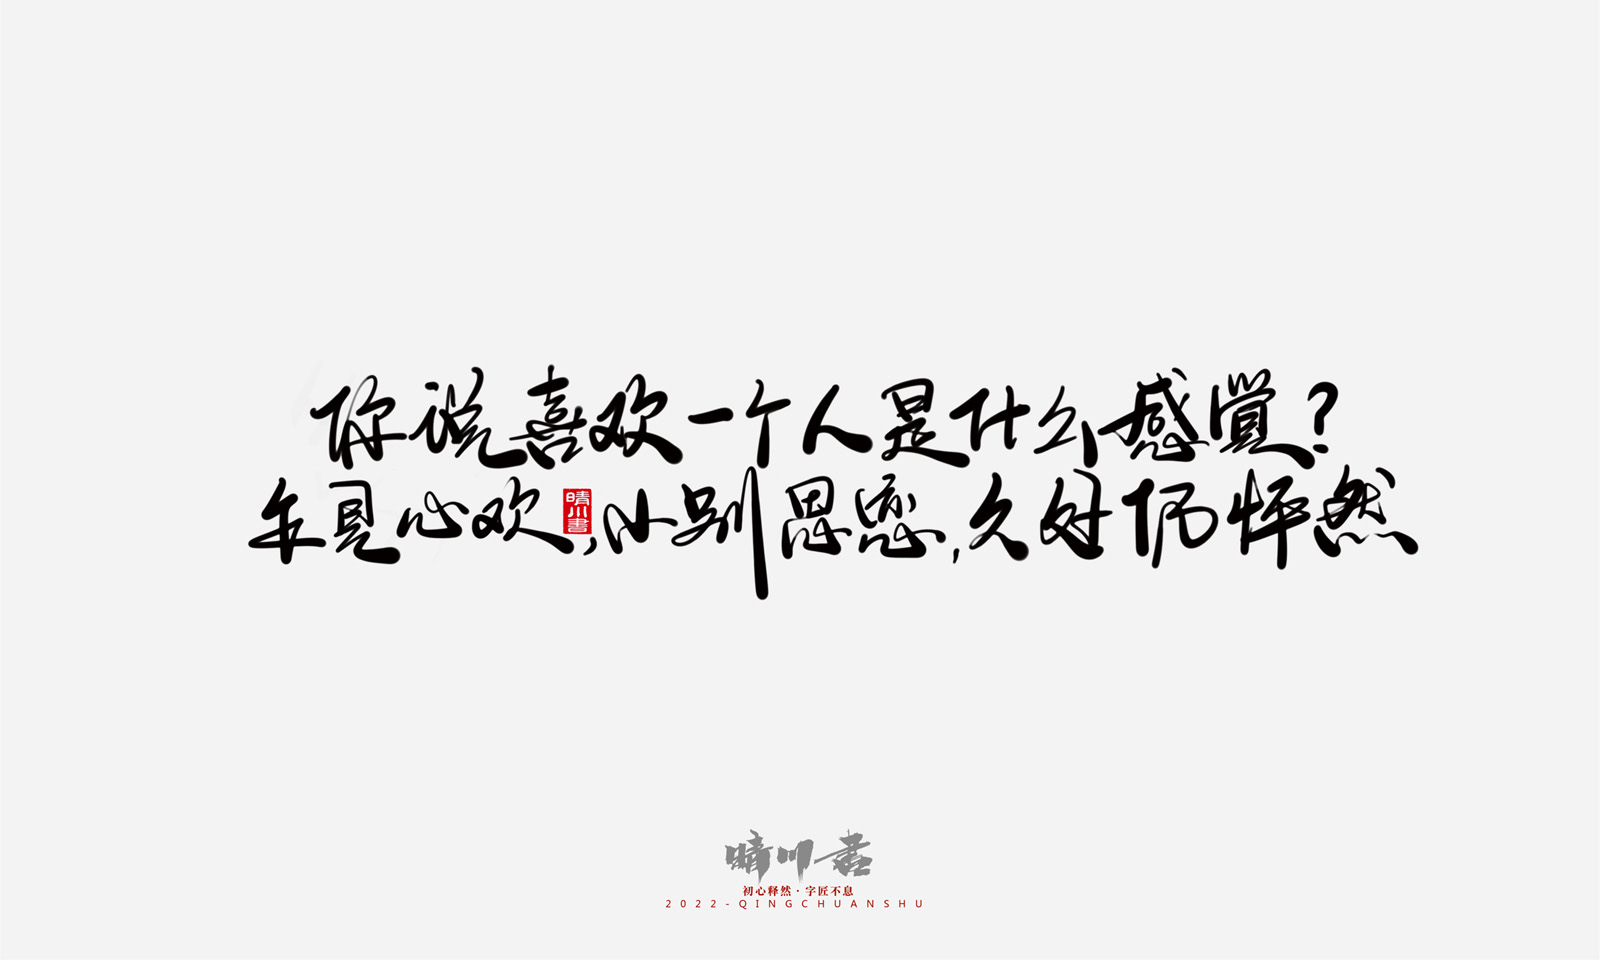 你说喜欢一个人是什么感觉？
乍见心欢，小别思恋，久处仍怦然
晴川書
晴川书
初心释然·字匠不息
2022-QINGCHUANSHU